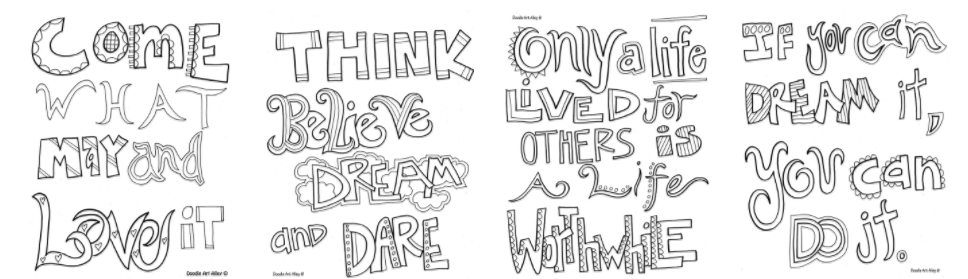 COME
WHAT
MAY and
Love iT
Doodle Art Alley ©
THINK
Believe
DREAM
and DARE
Doodle Art Alley ©
Doodle Art Alley ©
Only a life
LiVED for
OTHERS iS
A Life
WorthwhilE
IF you Can
DREAM it,
you can
DO it.
Doodle Art Alley ©